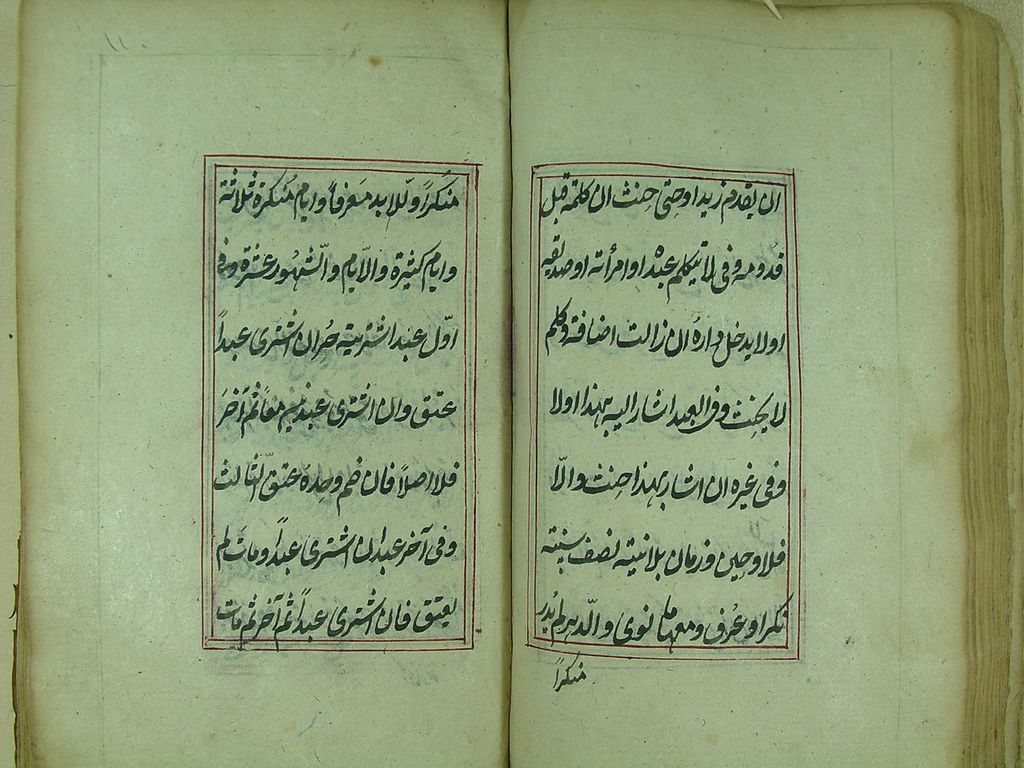 ان يقدم زيد او حتى حنث ان كلمه قبل
قدومه وفى لا يكلم عبده او امرأته او صديقه
او لا يدخل داره ان زالت اضافته وكلم
لا يحنث وفى العبد اشار اليه بهذا او لا
وفى غيره ان اشار بهذا حنث والّا
فلا وحين وزمان بلا نيته نصف سنته
نكرا و عُرف ومعهما ما نوى والّدهر لم يُدر
منكراً
منكراً وللابد مَعرفاً وايام مُنكرة ثلاثة
وايام كثيرة والايام والّشهُور عشرة وفى
اوّل عبد اشتريته حُر ان اشترى عبداً
عتق وان اشترى عبدين معاً ثم آخرَ
فلا اصلاً فان ضم وحده عتق الثالث
وفى آخر عبد ان اشترى عبداً ومات لم
يعتق فان اشترى عبداً ثم آخر ثم مات
١١٠